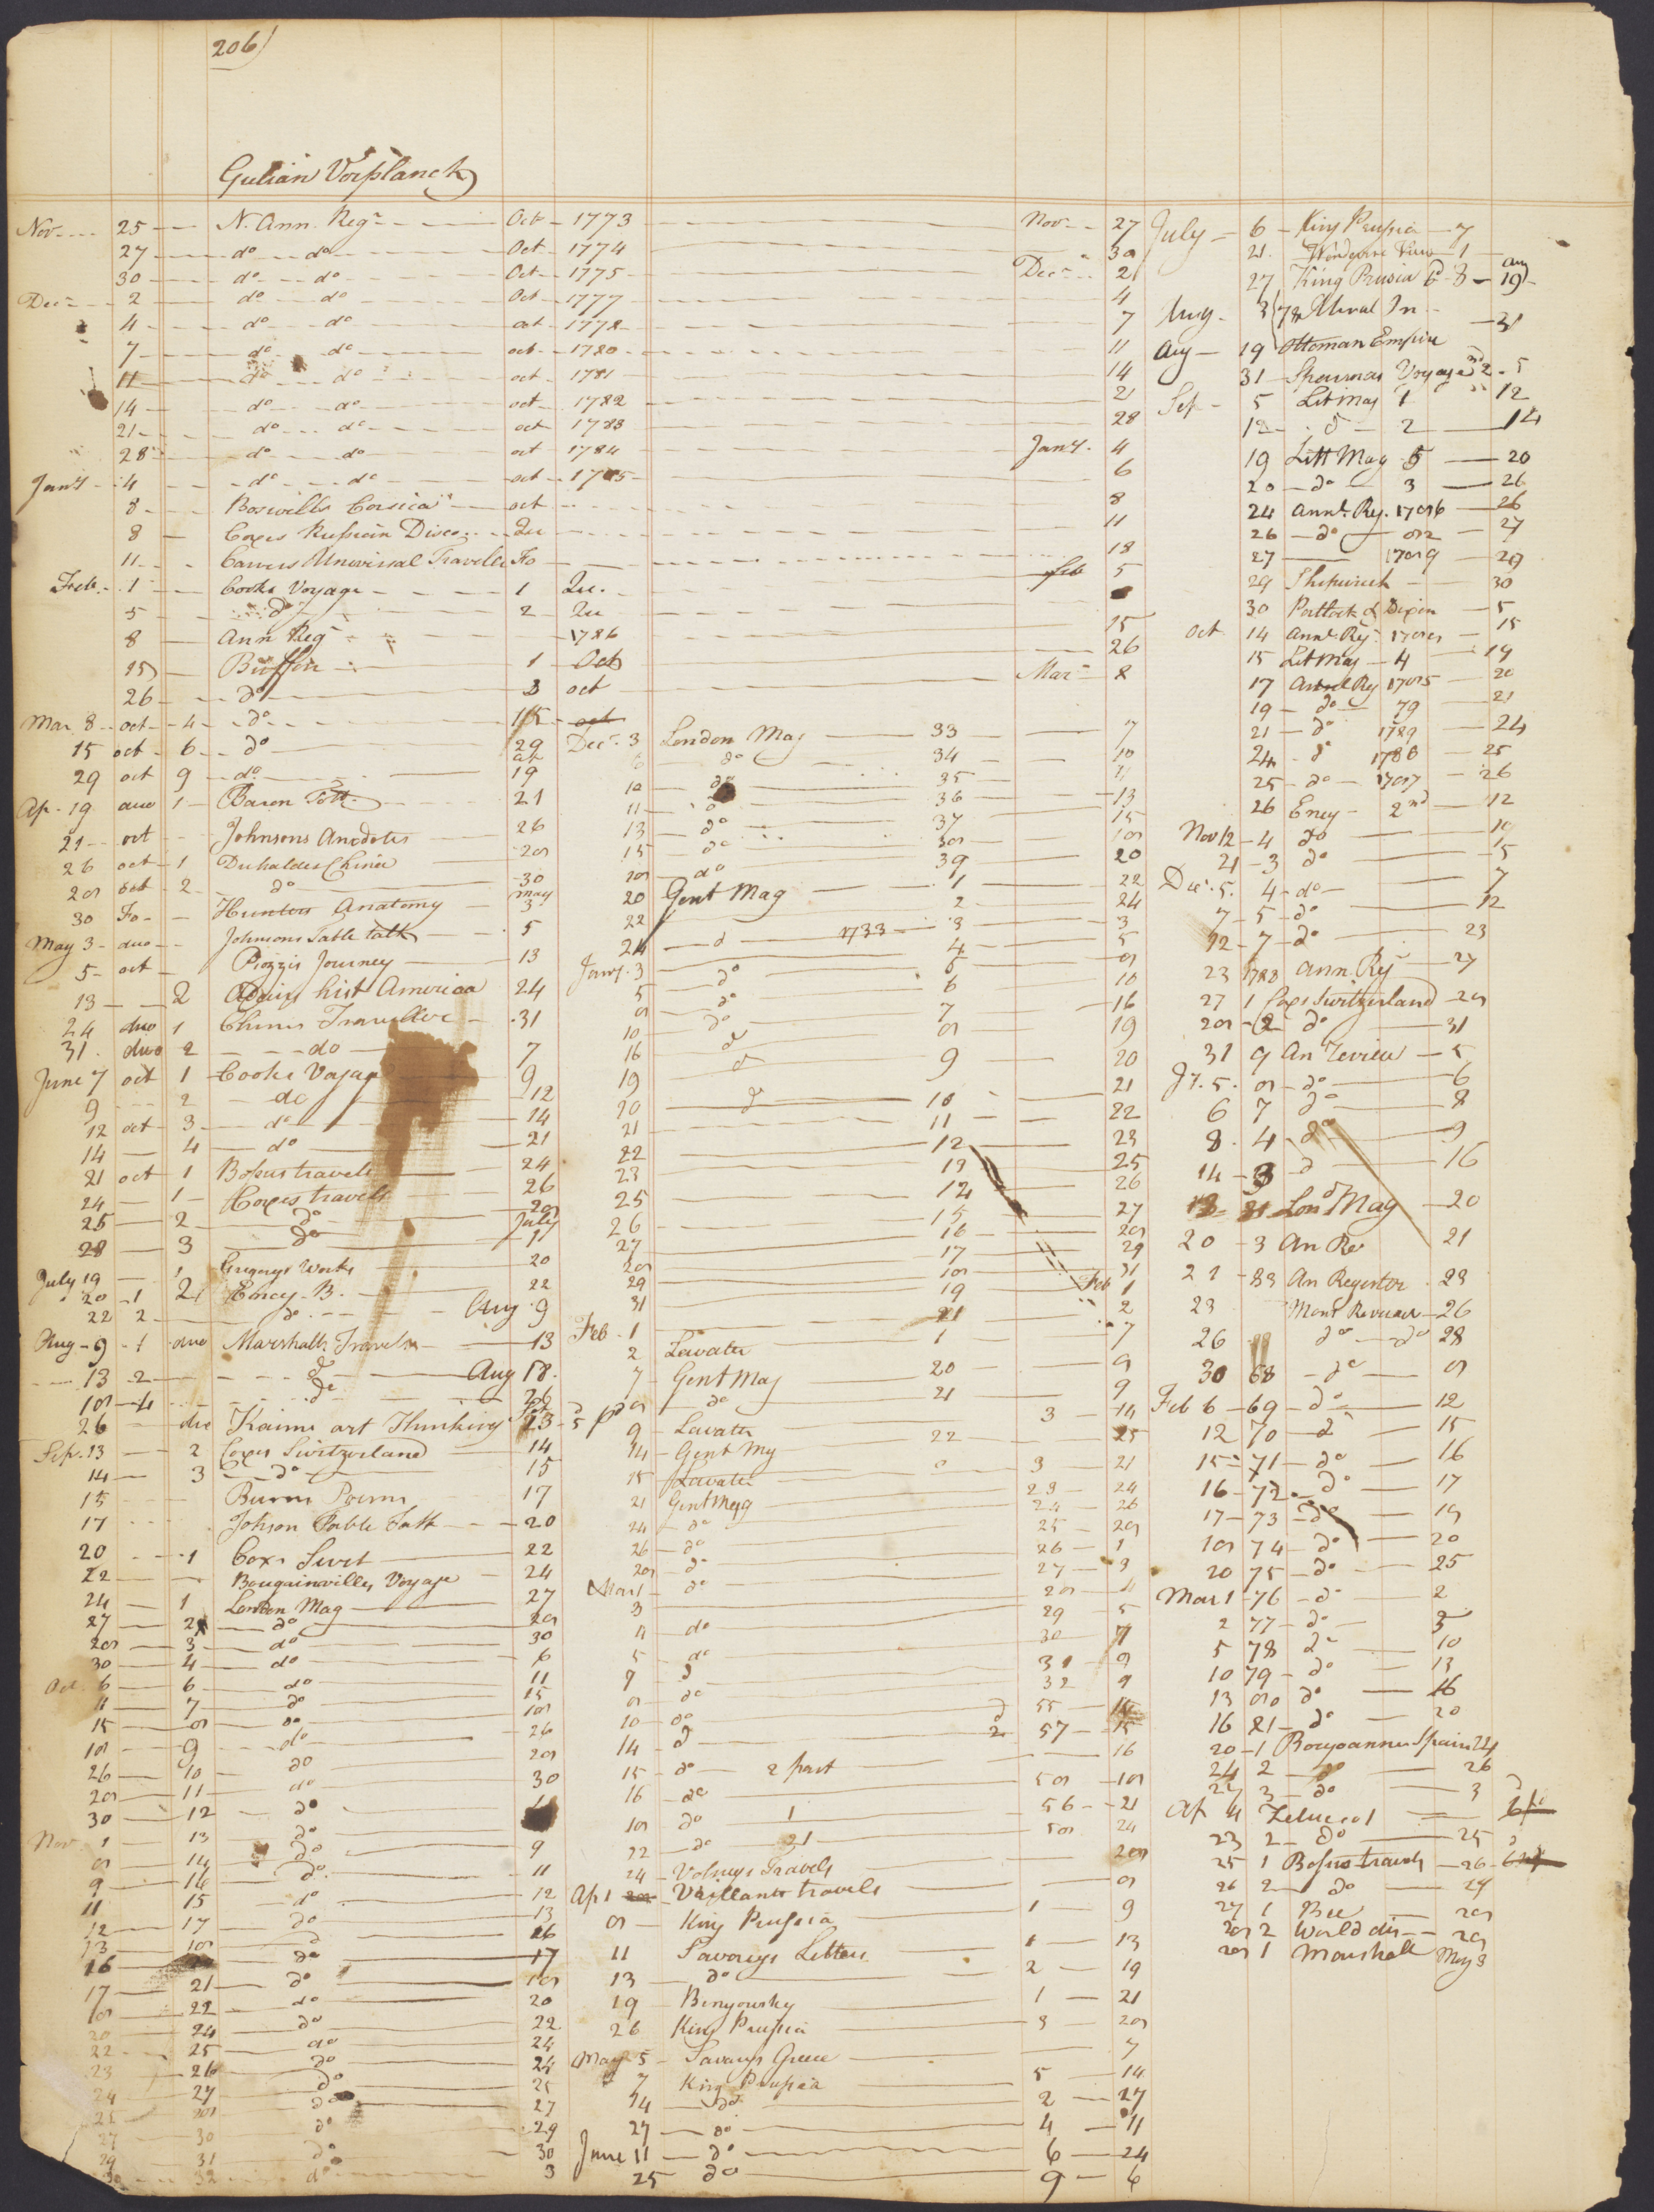 206
Gulian Verplanck
Nov 25 N. Ann. Regr Oct 1773 Nov 27
27 do do Oct 1774 30
30 do do Oct 1775 Decr 2
Decr 2 do do Oct 1777 4
4 do do oct 1778 7
7 do do oct 1780 11
11 do do oct 1781 14
14 do do oct 1782 21
21 do do oct 1783 28
28 do do oct 1784 Jany 4
Jany 4 do do oct 1785 6
8 Boswells Corsica oct 8
8 Coxes Russian Disco Qu 11
11 Carvers Universal Traveller Fo 18
Feb 1 Cooks Voyage 1 Qu. Feb 5
5 do 2 Qu
8 Ann Regr 1786 15
15 Buffon 1 Oct 26
26 do 3 oct Mar 8
Mar 8 oct 4 do 15 oct
15 oct 6 do 29
29 oct 9 do 19
Ap 19 duo 1 Baron Tott 21
21 oct Johnsons Anecdotes 26
26 oct 1 Duhaldes China 28
28 oct 2 do 30
30 Fo Hunters Anatomy may 3
May 3 duo Johnsons Table talk 5
5 oct Piozzis Journey 13
13 2 Adairs hist America 24
24 duo 1 Chinese Traveller 31
31 duo 2 do 7
June 7 oct 1 Cooks Voyage 9
9 2 do 12
12 oct 3 do 14
14 4 do 21
21 oct 1 Bossus travels 24
24 1 Coxes travels 26
25 2 do 28
28 3 do July 1
July 19 1 Gregorys Works 20
20 1 2 Ency. B. 22
22 2 do Aug 9
Aug 9 1 duo Marshalls Travels 13
13 2 do Aug 18
18 4 do 26
26 duo Kaims art Thinking 13
Sep. 13 2 Coxes Switzerland 14
14 3 do 15
15 Burns Poems 17
17 Johson Table Talk 20
20 1 Coxs Swit 22
22 Bougainvilles Voyage 24
24 1 London Mag 27
27 2 do 28
28 3 do 30
30 4 do 6
Oct 6 6 do 11
11 7 do 15
15 8 do 18
18 9 do 26
26 10 do 28
28 11 do 30
30 12 do
Nov 1 13 do
8 14 do 9
9 14 do 11
11 15 do 12
12 17 do 13
13 18 do 16
16 do 17
17 21 do 18
18 22 do 20
20 24 do 22
22 25 do 24
23 26 do 24
24 27 do 25
25 28 do 27
27 30 do 29
29 31 do 30
30 32 do 3
Decr 3 London Mag 33 7
6 do 34 10
10 do 35 11
11 do 36 13
13 do 37 15
15 do 38 18
18 do 39 20
20 Gent Mag 1 22
22 2 24
24 d 1733 3 3
Jany 3 4 5
5 do 5 8
8 do 6 10
10 do 7 16
16 d 8 19
19 d 9 20
20 d 10 21
21 11 22
22 12 23
23 13 25
25 14 26
26 15 27
27 16 28
28 17 29
29 18 31
31 19 Feb 1
Feb 1 21 2
2 Lavater 1 7
7 Gent Mag 20 8
8 do 21 9
9 Lavater 3 14
14 Gent Mg 22 25
15 Lavater 3 21
21 Gent Magg 23 24
24 do 24 26
26 do 25 28
28 do 26 1
Mar 1 do 27 3
3 28 4
4 do 29 5
5 do 30 7
7 d 31 8
8 do 32 9
10 do 55 14
14 d 57 15
15 do 2 part 16
16 do 58 18
18 do 1 56 21
22 do 21 58 24
24 Volneys Travels 28
Ap 1 Vaillants travels 8
8 King Prussia 1 9
11 Savareys Letters 1 13
13 do 2 19
19 Benyowsky 1 21
26 King Prussia 3 28
May 5 Savarys Greece 7
7 King Prussia 5 14
14 do 2 27
27 do 4 11
June 11 do 6 24
25 do 9 6
July 6 King Prussia 7
21 1
27 King Prusia 6d 8 Aug 19
Aug 3 78 31
Aug 19 Ottoman Empire
31 Sparmas Voyage 2 5
Sep 5 Lit Mag 1 12
12 d 2 14
19 Litt Mag 5 20
20 do 3 26
24 Annl Reg. 1786 26
26 do 82 27
27 1789 29
29 Shipwreck 30
30 Portlock & Dixon 5
Oct 14 Annl Reg 15
15 Lit Mag 4 19
17 Annl Reg 1785 20
19 do 79 21
21 do 1789 24
24 d 1788 25
25 do 1787 26
26 Ency 2nd 12
Nov 12 4 do 19
21 3 do 5
Decr 5 4 do 7
7 5 do 12
12 7 do 23
23 1783 Ann. Rg 27
27 1 Coxs Switzerland 28
28 2 do 31
31 9 An Review 5
Jy. 5 8 do 6
6 7 do 8
8 4 do 9
14 3 d 16
Lond Mag 20
20 3 An Re 21
21 83 An Regestor 23
23 Mont Review 26
26 do do 28
30 68 do 8
Feb 6 69 do 12
12 70 d 15
15 71 do 16
16 72 do 17
17 73 do 19
18 74 do 20
20 75 do 25
Mar 1 76 do 2
2 77 do 5
5 78 do 10
10 79 do 13
13 80 do 16
16 81 do 20
20 1 Bourgoannes Spain 24
24 2 do 26
27 3 do 3
Ap 4 Zeluco 1
23 2 do 25
25 1 Bossus travels 26
26 2 do 27
27 1 Bee 28
28 2 World dis 28
28 1 Marshall May 3